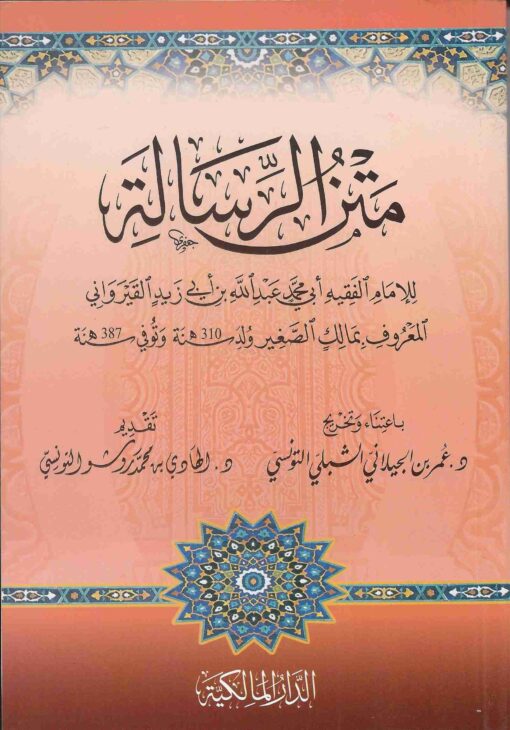 مَتْنُ الرِّسَالَةِ
لِلإِمَامِ الفَقِيهِ أَبِي مُحَمَّد عَبْدِ اللَّهِ بْنِ أَبِي زَيْدٍ القَيْرَوَانِي
المَعْرُوفِ بِمَالِكٍ الصَّغِيرِ وُلِدَ سَنَة 310 هـ وَتُوُفِّيَ سَنَة 387 هـ
بِاعْتِنَاء وَتَخْرِيج
د. عُمر بن الجيلاني الشبلي التونسي
تَقْدِيم
د. الهادي بن محمد روشو التونسي
الدَّارُ المَالِكِيَّة